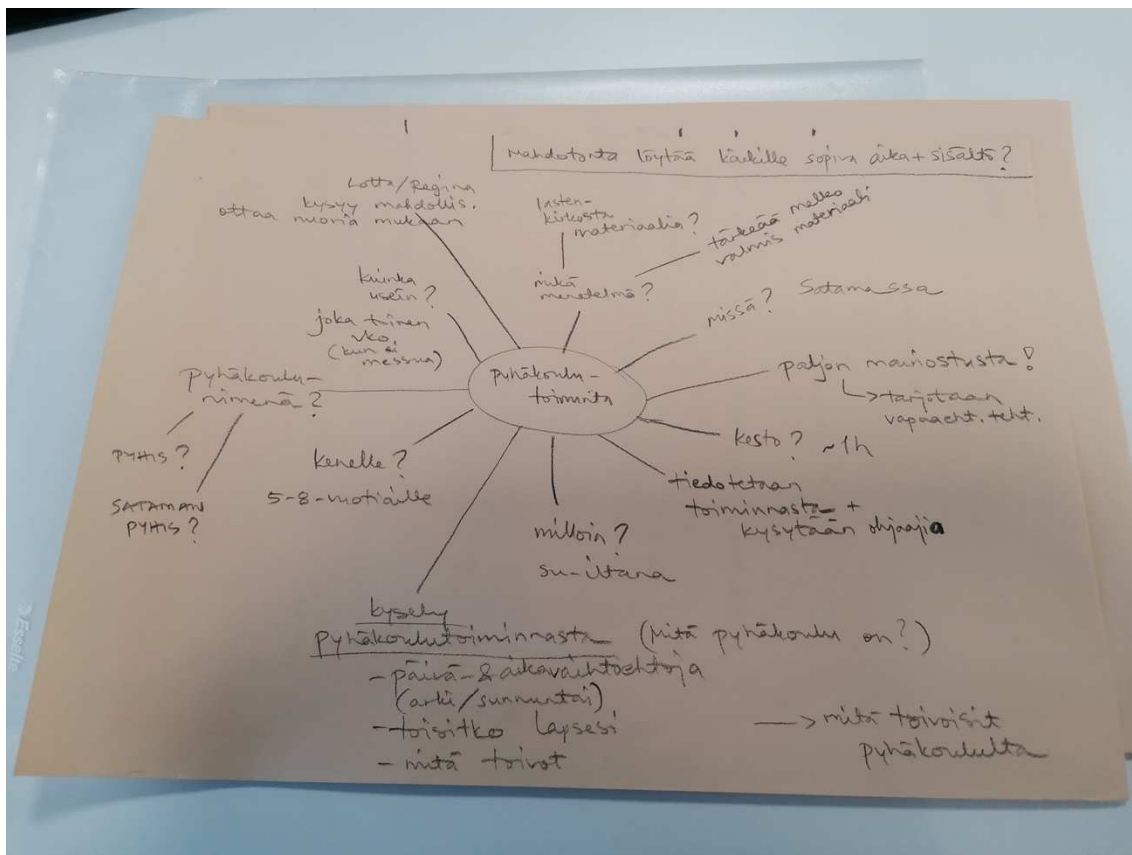 Mahdotonta löytää kaikille sopiva aika + sisältö?
Lotta/Regina
kysyy mahdollis.
ottaa nuoria mukaan
lasten-
kirkosta
materiaalia?
tärkeää melko
valmis materiaali
mikä
menetelmä?
missä? Satamassa
kuinka
usein?
joka toinen
vko.
(kun ei
messua)
pyhäkoulu-
toiminta
paljon mainostusta!
↳ tarjotaan
vapaaeht. teht.
pyhäkoulu-
nimenä?
PYHIS?
SATAMAN
PYHIS?
kenelle?
5-8-vuotiaille
kesto? ~1h
tiedotetaan
toiminnasta +
kysytään ohjaajia
milloin?
su-iltana
kysely
pyhäkoulutoiminnasta (mitä pyhäkoulu on?)
- päivä- & aikavaihtoehtoja
(arki/sunnuntai)
- toisitko lapsesi
- mitä toivot
→ mitä toivoisit
pyhäkoululta
Esselte